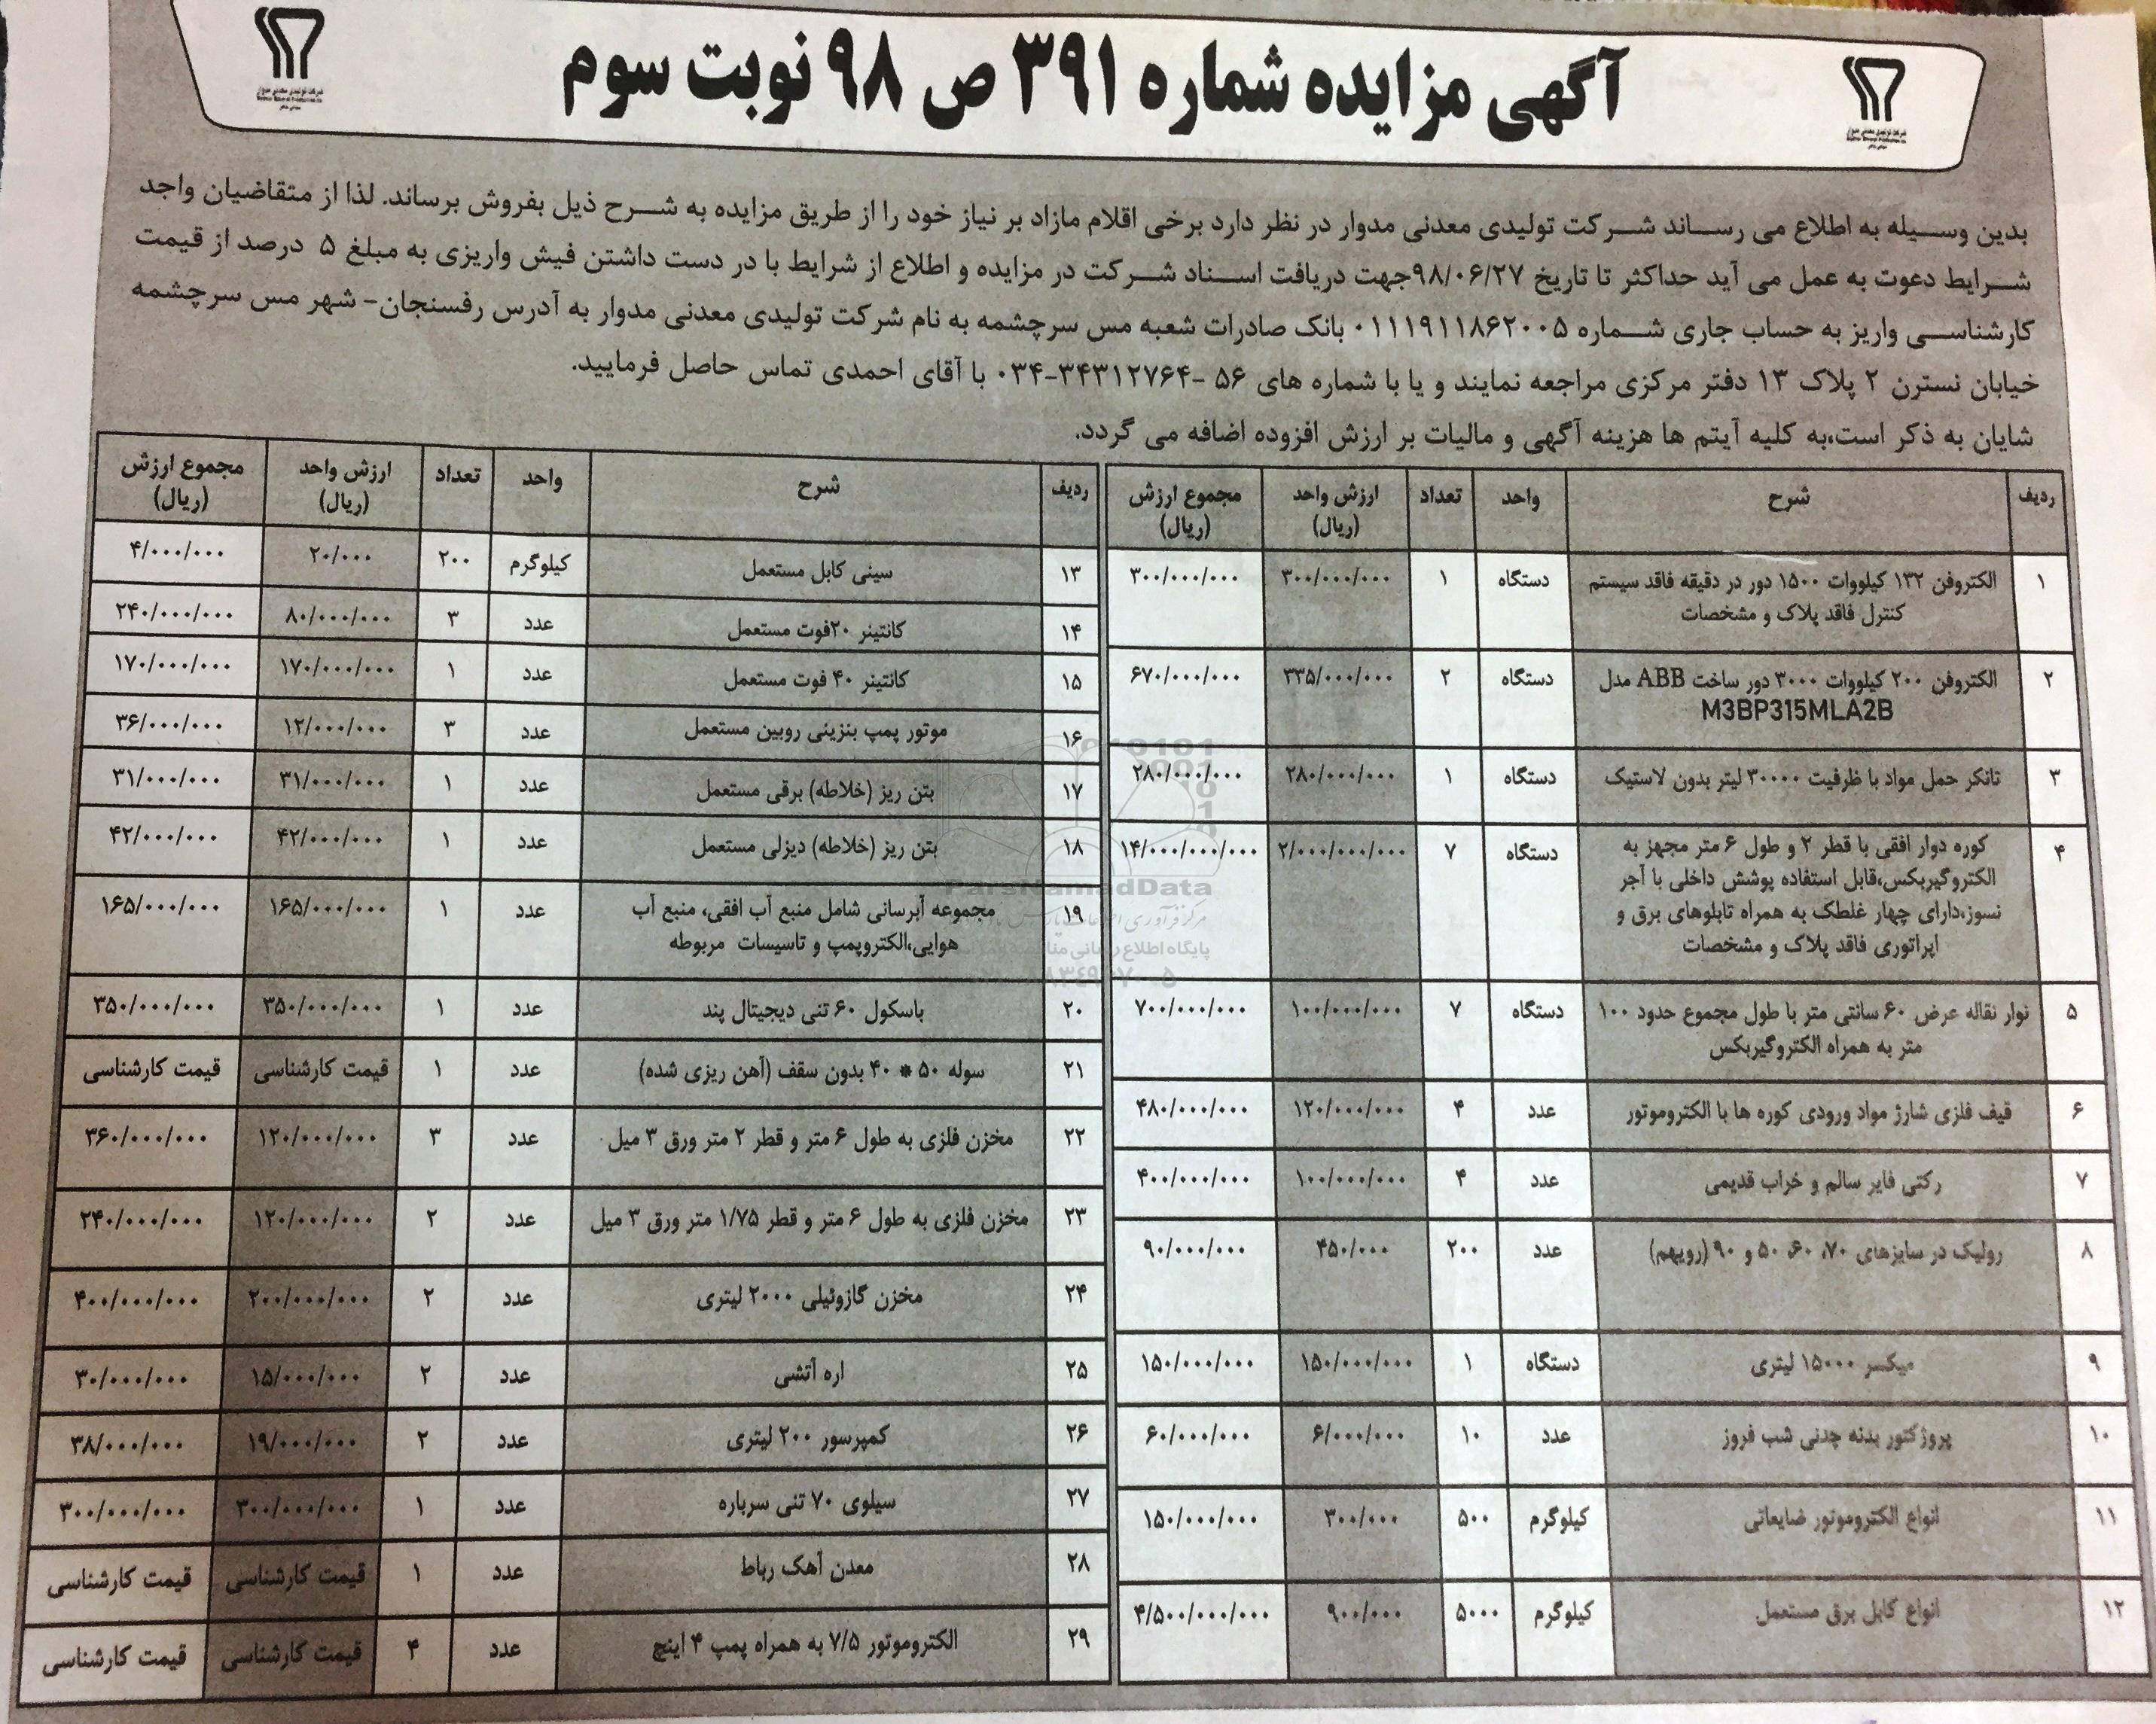 آگهی مزایده شماره ۳۹۱ ص ۹۸ نوبت سوم
بدین وسیله به اطلاع می رساند شرکت تولیدی معدنی مدوار در نظر دارد برخی اقلام مازاد بر نیاز خود را از طریق مزایده به شرح ذیل بفروش برساند. لذا از متقاضیان واجد
شرایط دعوت به عمل می آید حداکثر تا تاریخ ۹۸/۰۶/۲۷جهت دریافت اسناد شرکت در مزایده و اطلاع از شرایط با در دست داشتن فیش واریزی به مبلغ ۵ درصد از قیمت
کارشناسی واریز به حساب جاری شماره ۰۱۱۱۹۱۱۸۶۲۰۰۵ بانک صادرات شعبه مس سرچشمه به نام شرکت تولیدی معدنی مدوار به آدرس رفسنجان- شهر مس سرچشمه
خیابان نسترن ۲ پلاک ۱۳ دفتر مرکزی مراجعه نمایند و یا با شماره های ۵۶ -۳۴۳۱۲۷۶۴-۰۳۴ با آقای احمدی تماس حاصل فرمایید.
شایان به ذکر است،به کلیه آیتم ها هزینه آگهی و مالیات بر ارزش افزوده اضافه می گردد.
ردیف شرح واحد تعداد ارزش واحد (ریال) مجموع ارزش (ریال)
۱ الکتروفن ۱۳۲ کیلووات ۱۵۰۰ دور در دقیقه فاقد سیستم دستگاه ۱ ۳۰۰/۰۰۰/۰۰۰ ۳۰۰/۰۰۰/۰۰۰
کنترل فاقد پلاک و مشخصات
۲ الکتروفن ۲۰۰ کیلووات ۳۰۰۰ دور ساخت ABB مدل دستگاه ۲ ۳۳۵/۰۰۰/۰۰۰ ۶۷۰/۰۰۰/۰۰۰
M3BP315MLA2B
۳ تانکر حمل مواد با ظرفیت ۳۰۰۰۰ لیتر بدون لاستیک دستگاه ۱ ۲۸۰/۰۰۰/۰۰۰ ۲۸۰/۰۰۰/۰۰۰
۴ کوره دوار افقی با قطر ۲ و طول ۶ متر مجهز به دستگاه ۷ ۲/۰۰۰/۰۰۰/۰۰۰ ۱۴/۰۰۰/۰۰۰/۰۰۰
الکتروگیربکس،قابل استفاده پوشش داخلی با آجر
نسوز،دارای چهار غلطک به همراه تابلوهای برق و
اپراتوری فاقد پلاک و مشخصات
۵ نوار نقاله عرض ۶۰ سانتی متر با طول مجموع حدود ۱۰۰ دستگاه ۷ ۱۰۰/۰۰۰/۰۰۰ ۷۰۰/۰۰۰/۰۰۰
متر به همراه الکتروگیربکس
۶ قیف فلزی شارژ مواد ورودی کوره ها با الکتروموتور عدد ۴ ۱۲۰/۰۰۰/۰۰۰ ۴۸۰/۰۰۰/۰۰۰
۷ رکتی فایر سالم و خراب قدیمی عدد ۴ ۱۰۰/۰۰۰/۰۰۰ ۴۰۰/۰۰۰/۰۰۰
۸ رولیک در سایزهای ۷۰، ۶۰، ۵۰ و ۹۰ (رویهم) عدد ۲۰۰ ۴۵۰/۰۰۰ ۹۰/۰۰۰/۰۰۰
۹ میکسر ۱۵۰۰۰ لیتری دستگاه ۱ ۱۵۰/۰۰۰/۰۰۰ ۱۵۰/۰۰۰/۰۰۰
۱۰ پروژکتور بدنه چدنی شب فروز عدد ۱۰ ۶/۰۰۰/۰۰۰ ۶۰/۰۰۰/۰۰۰
۱۱ انواع الکتروموتور ضایعاتی کیلوگرم ۵۰۰ ۳۰۰/۰۰۰ ۱۵۰/۰۰۰/۰۰۰
۱۲ انواع کابل برق مستعمل کیلوگرم ۵۰۰۰ ۹۰۰/۰۰۰ ۴/۵۰۰/۰۰۰/۰۰۰
ردیف شرح واحد تعداد ارزش واحد (ریال) مجموع ارزش (ریال)
۱۳ سینی کابل مستعمل کیلوگرم ۲۰۰ ۲۰/۰۰۰ ۴/۰۰۰/۰۰۰
۱۴ کانتینر ۲۰فوت مستعمل عدد ۳ ۸۰/۰۰۰/۰۰۰ ۲۴۰/۰۰۰/۰۰۰
۱۵ کانتینر ۴۰ فوت مستعمل عدد ۱ ۱۷۰/۰۰۰/۰۰۰ ۱۷۰/۰۰۰/۰۰۰
۱۶ موتور پمپ بنزینی روبین مستعمل عدد ۳ ۱۲/۰۰۰/۰۰۰ ۳۶/۰۰۰/۰۰۰
۱۷ بتن ریز (خلاطه) برقی مستعمل عدد ۱ ۳۱/۰۰۰/۰۰۰ ۳۱/۰۰۰/۰۰۰
۱۸ بتن ریز (خلاطه) دیزلی مستعمل عدد ۱ ۴۲/۰۰۰/۰۰۰ ۴۲/۰۰۰/۰۰۰
۱۹ مجموعه آبرسانی شامل منبع آب افقی، منبع آب عدد ۱ ۱۶۵/۰۰۰/۰۰۰ ۱۶۵/۰۰۰/۰۰۰
هوایی،الکتروپمپ و تاسیسات مربوطه
۲۰ باسکول ۶۰ تنی دیجیتال پند عدد ۱ ۳۵۰/۰۰۰/۰۰۰ ۳۵۰/۰۰۰/۰۰۰
۲۱ سوله ۵۰ * ۴۰ بدون سقف (آهن ریزی شده) عدد ۱ قیمت کارشناسی قیمت کارشناسی
۲۲ مخزن فلزی به طول ۶ متر و قطر ۲ متر ورق ۳ میل عدد ۳ ۱۲۰/۰۰۰/۰۰۰ ۳۶۰/۰۰۰/۰۰۰
۲۳ مخزن فلزی به طول ۶ متر و قطر ۱/۷۵ متر ورق ۳ میل عدد ۲ ۱۲۰/۰۰۰/۰۰۰ ۲۴۰/۰۰۰/۰۰۰
۲۴ مخزن گازوئیلی ۲۰۰۰ لیتری عدد ۲ ۲۰۰/۰۰۰/۰۰۰ ۴۰۰/۰۰۰/۰۰۰
۲۵ اره آتشی عدد ۲ ۱۵/۰۰۰/۰۰۰ ۳۰/۰۰۰/۰۰۰
۲۶ کمپرسور ۲۰۰ لیتری عدد ۲ ۱۹/۰۰۰/۰۰۰ ۳۸/۰۰۰/۰۰۰
۲۷ سیلوی ۷۰ تنی سرباره عدد ۱ ۳۰۰/۰۰۰/۰۰۰ ۳۰۰/۰۰۰/۰۰۰
۲۸ معدن آهک رباط عدد ۱ قیمت کارشناسی قیمت کارشناسی
۲۹ الکتروموتور ۷/۵ به همراه پمپ ۴ اینچ عدد ۴ قیمت کارشناسی قیمت کارشناسی
ParsNamadData